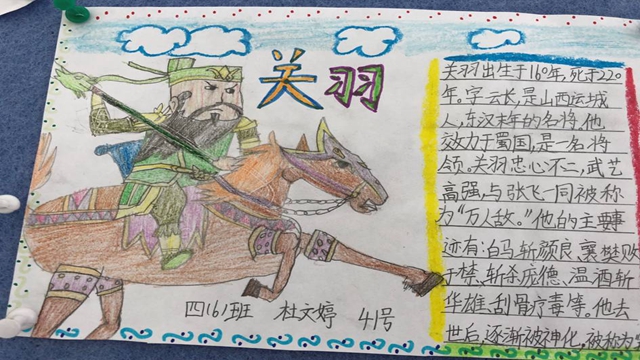 关羽
关羽出生于160年,死于220
年。字云长,是山西运城
人,东汉末年的名将,他
效力于蜀国,是一名将
领。关羽忠心不二,武艺
高强,与张飞一同被称
为“万人敌。”他的主要事
迹有:白马斩颜良、襄樊败
于禁、斩杀庞德、温酒斩
华雄、刮骨疗毒等。他去
世后,逐渐被神化,被称为
四(6)班 杜文婷 41号